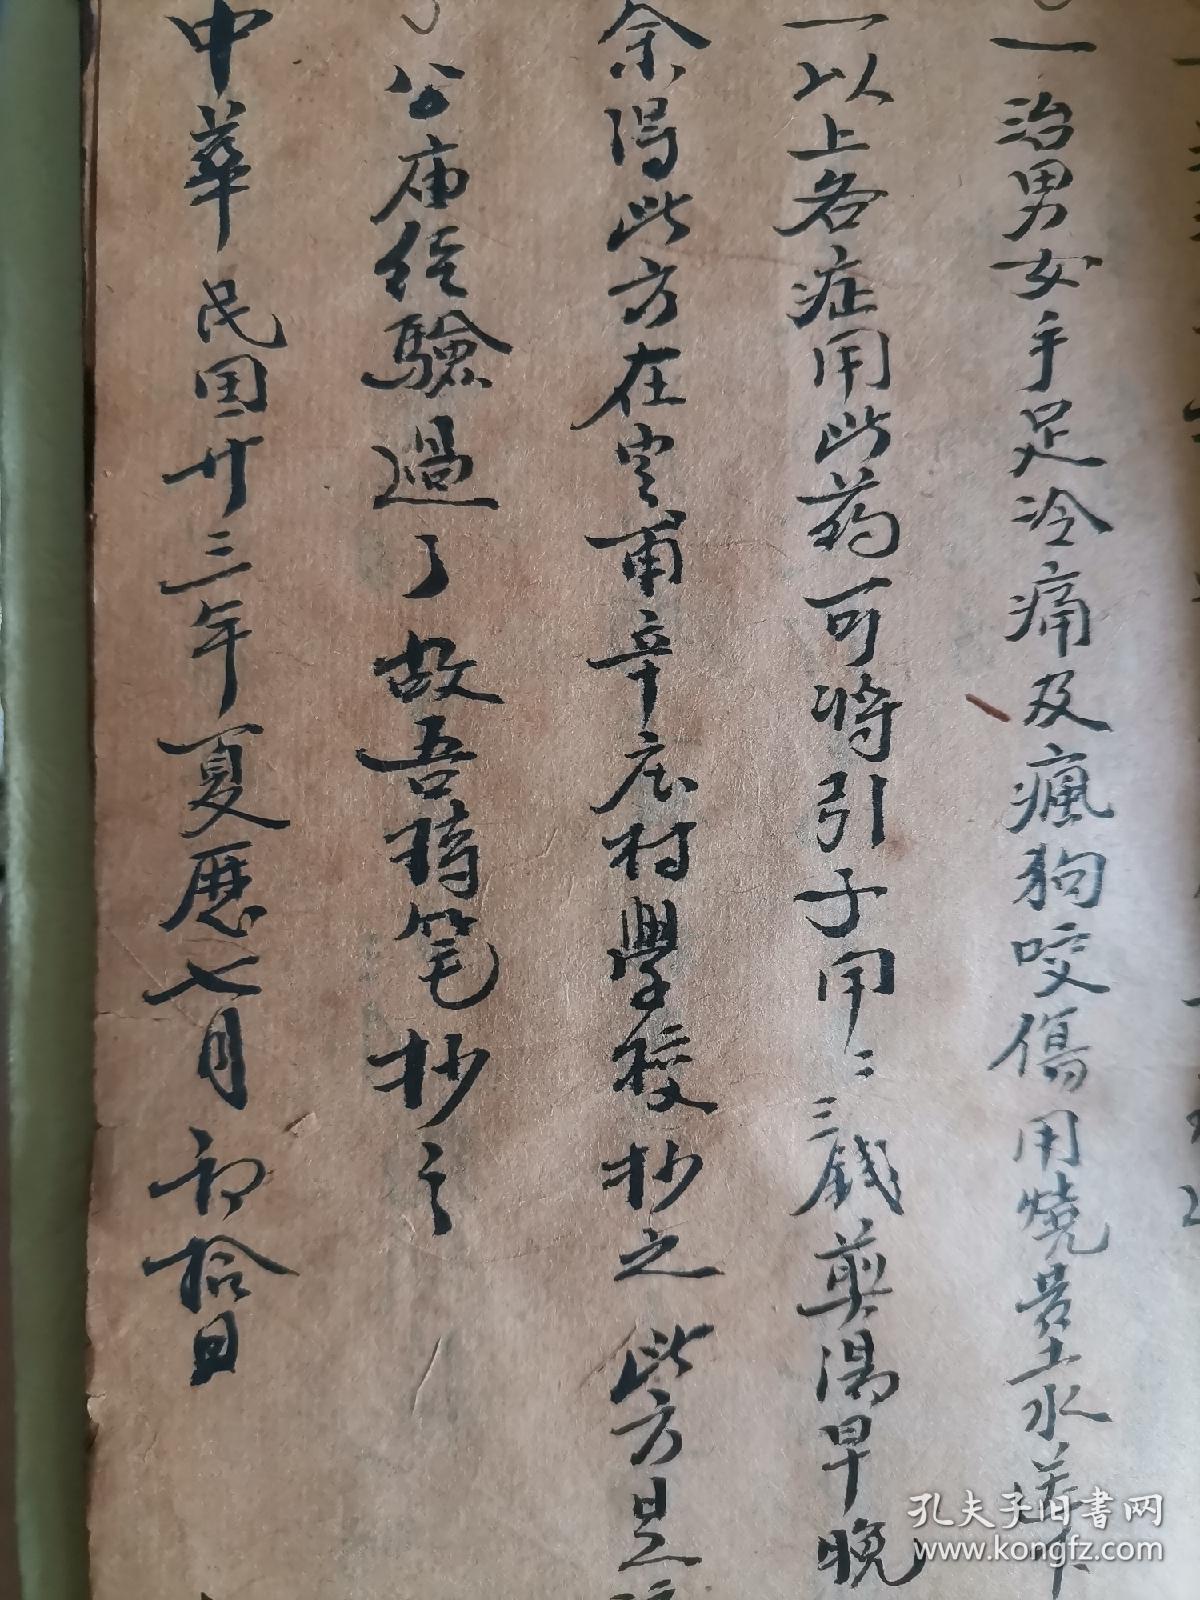 一治男女手足冷痛及瘋狗咬傷用燒黃土水送下
一以上各症用此药可将引子用二三錢煎湯早晚
余得此方在寧甫辛庄村學校抄之此方是
公庙经驗過了故吾提笔抄之
中華民国廿三年夏歷七月初拾日
孔夫子旧书网
www.kongfz.com